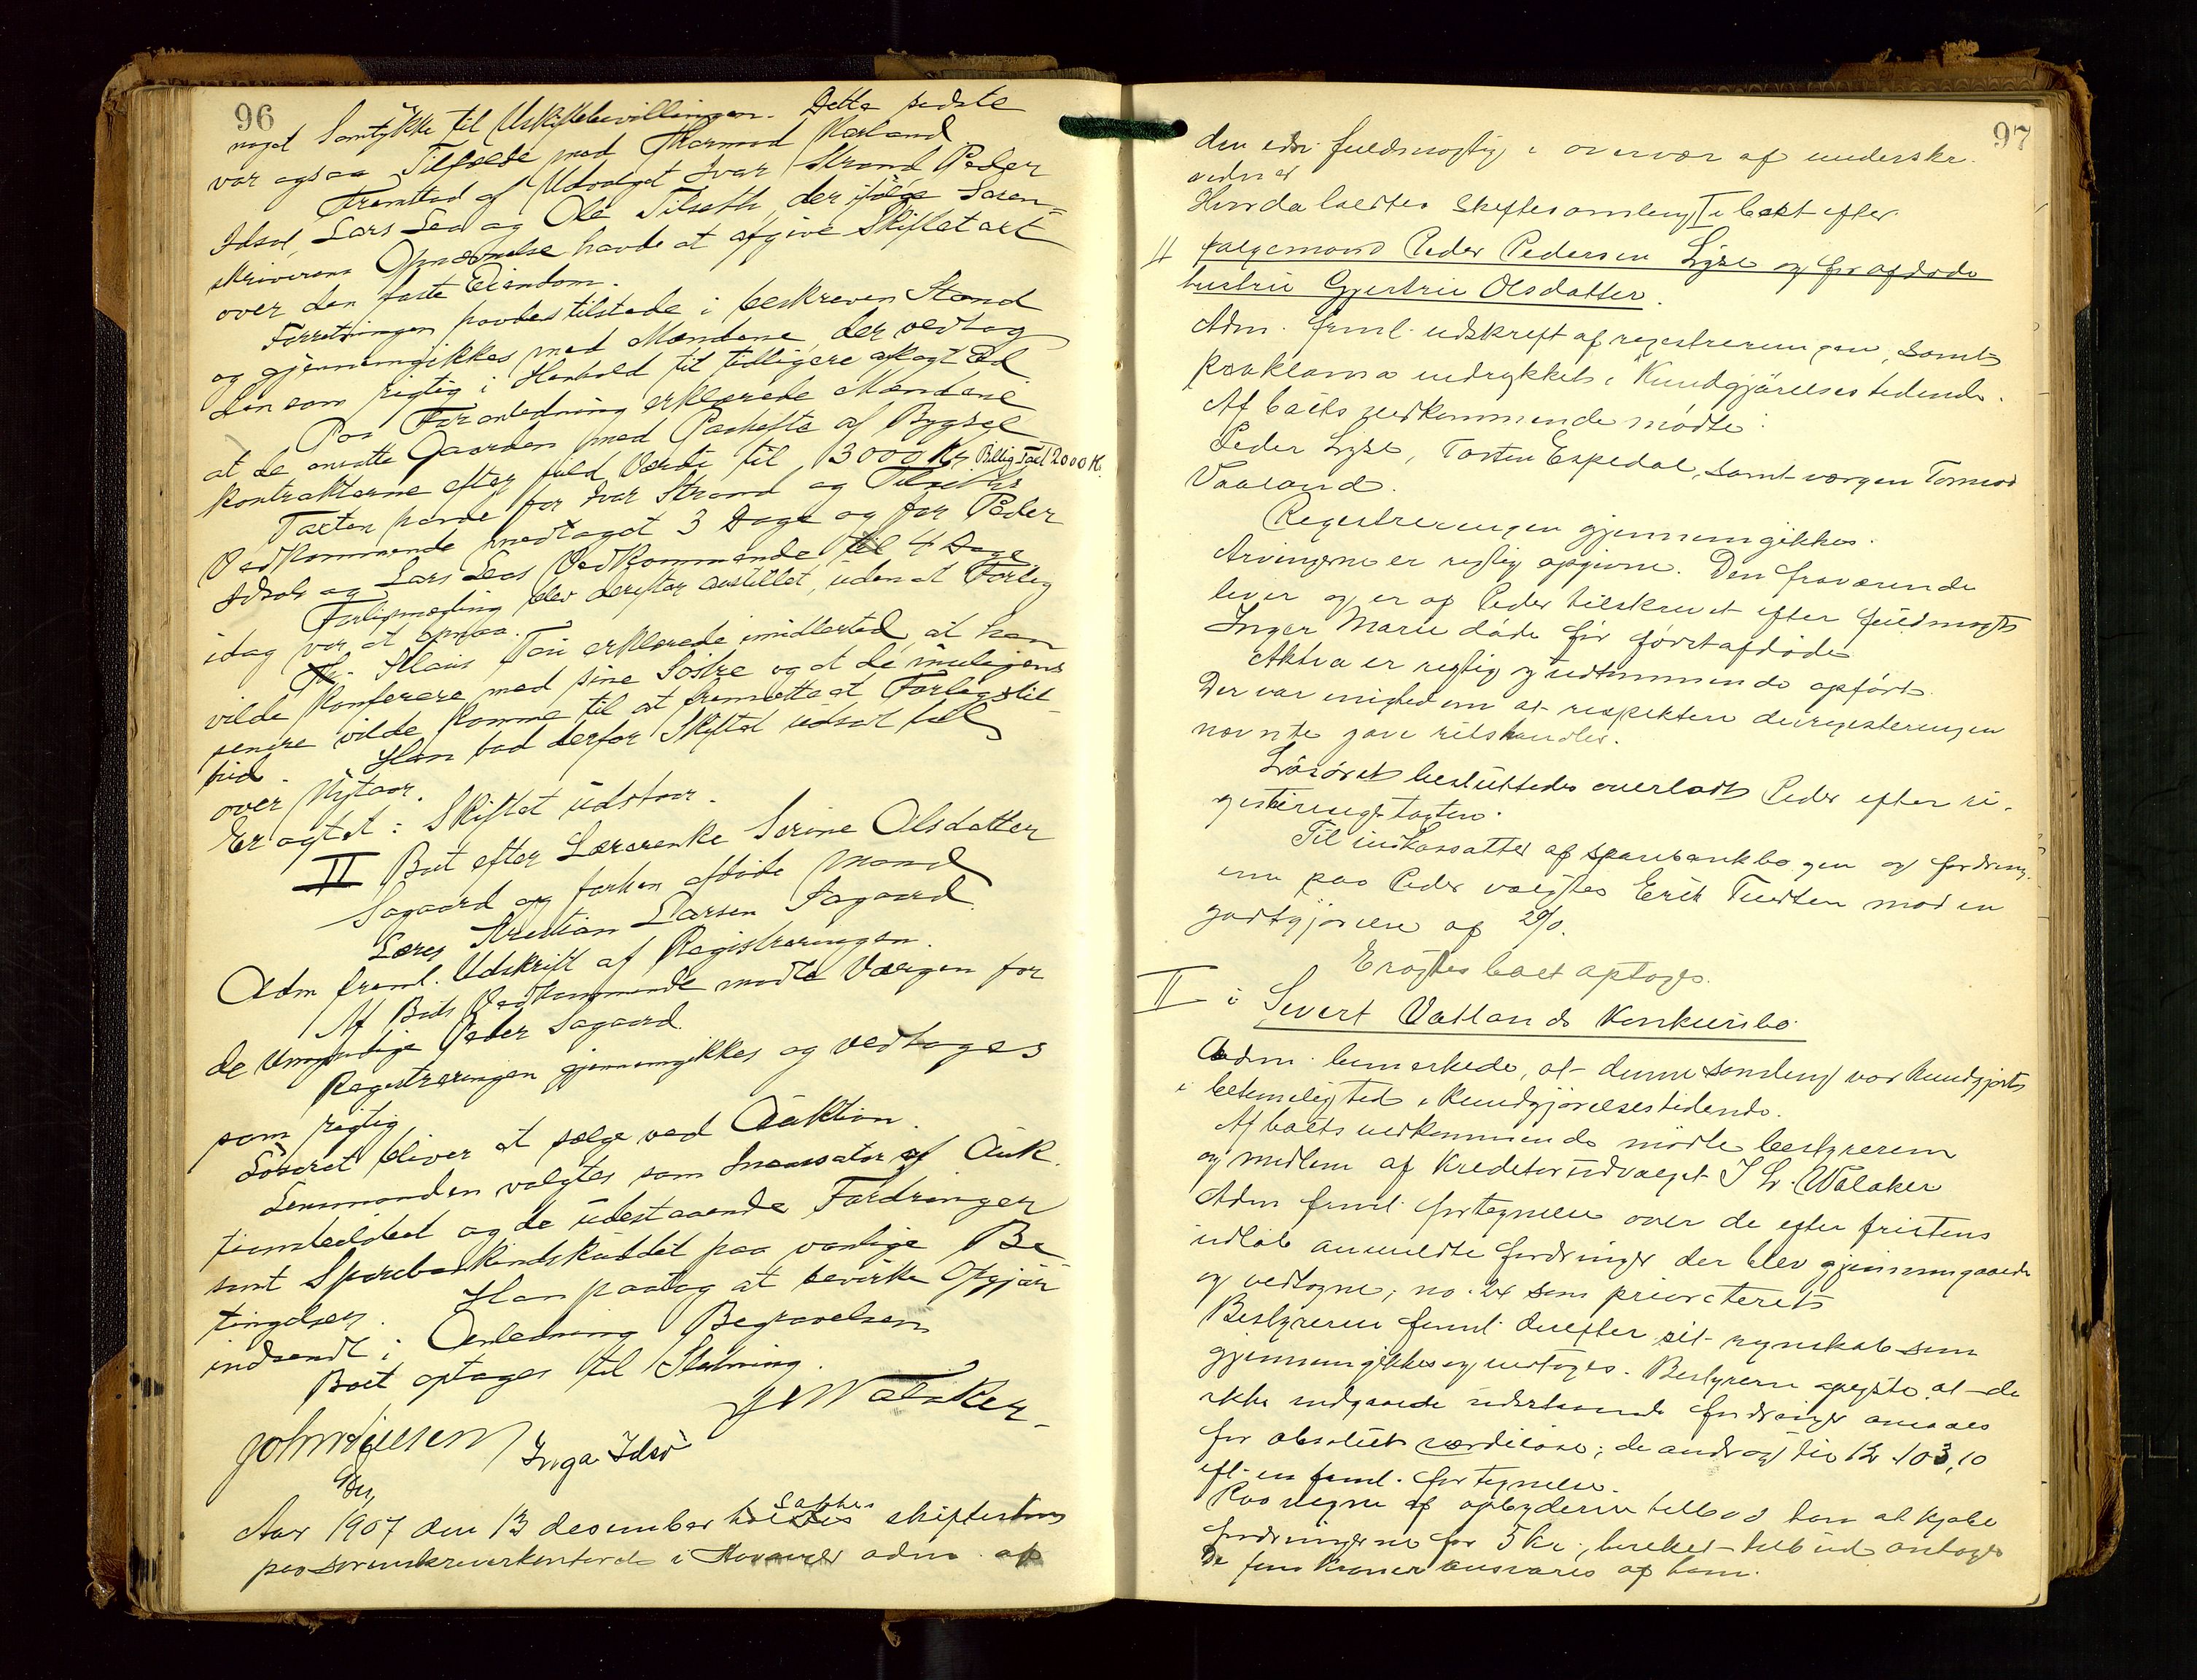 96
noget Samtykke til Uskiftebevillingen. Dette sidste
var ogsaa Tilfælde med Thormod Vaaland
Fremstod af Udvalget Ivar Strand Peder
Idsøe, Lars Lea og Ole Tilseth, der ifølge Soren-
skriverens Opnævnelse havde at afgive Skiftetaxt
over den faste Eiendom.
Forretningen havdes tilstede i beskreven Stand
og gjennemgikkes med Mændene, der vedtog
den som rigtig i Henhold til tidligere aflagt Ed
Paa Foranledning erklærede Mændene
at de ansatte Gaarden med Paahefte af Bygsel
kontrakterne efter fuld Værdi til 3000 Kr Billig Taxt 2000 K.
Taxten havde for Ivar Strand og Tilseths
Vedkommende medtaget 3 Dage og for Peder
Idsøe og Lars Leas Vedkommende til 4 Dage
Forligsmægling blev derefter anstillet, uden at Forlig
idag var at opnaa.
Klaus Tøn erklærede imidlertid, at han
vilde konferere med sine Søstre og at de muligens
senere vilde komme til at fremsætte at Forlegstil-
bud. Han bad derfor Skiftet udsat til
over Nytaar.
Eragtet: Skiftet udstaar.
II Boet efter Lærerenke Serine Olsdatter
Sagaard og forhen afdøde Mand
Lærer Kristian Larsen Sagaard.
Adm freml. Udskrift af Registreringen.
Af Boets Vedkommende mødte Værgen for
de Umyndige Peder Sagaard.
Registreringen gjennemgikkes og vedtoges
som rigtig
Løsøret bliver at sælge ved Auktion.
Lensmanden valgtes som Incassator af Auk.
tionsbeløbet og de udestaaende Fordringer
samt Sparebankindskuddet paa vanlige Be
tingelser. Han paatog at bevirke Opgjør
indsendt i Anledning Begravelsen
Boet optages til Slutning.
J Walaker
Inga Idsø
Aar 1907 den 13 desember holdtes skifteret
paa sorenskriverkontoret i adm. af
97
den edsv. fuldmægtig i overvær af underskr.
vidner
Hvorda holdtes skiftesamling I i boet efter
1) Peder Pedersen Lyse og før afdøde
hustru Gjertrue Olsdatter.
Adm. freml. udskrift af registreringen, samt
proklama indrykket i Kundgjørelsestidende.
Af boets vedkommende mødte:
Peder Lyse, Torsten Espedal, samt værgen Tormod
Vaaland.
Registreringen gjennemgikkes.
Arvingerne er rigtig opgivne. Den fraværende
lever og er af Peder tilskrevet efter fuldmagt
Inger Marie døde før førstafdøde
Aktiva er rigtig og udtømmende opført.
Der var enighed om at respektere de i registreringen
nævnte gave
Løsøret besluttedes overladt Peder efter re-
gistreringstaxten.
Til inkassator af sparebankbogen og fordring-
erne paa Peder valgtes Erik Tuedten mod en
godtgjørelse af 2%.
Eragtes boet optoges.
II i Sivert Vatlands Konkursbo.
Adm. bemærkede, at denne samling var kundgjort
i betimelig tid i Kundgjørelsestidende.
Af boets vedkommende mødte bestyreren
og medlem af Kreditorudvalget J L. Walaker
Adm freml. fortegnelse over de efter fristens
udløb anmeldte fordringer der blev gjennemgaaede
og vedtagne, no. 24 som prioriteret
Bestyreren freml. derefter sit regnskab som
gjennemgikkes og vedtoges. Bestyreren oplyste, at de
ikke indgaaede udestaaende fordringer ansaaes
for absolut værdiløse; de androg til 12 103,10
eft. en freml. fortegnelse.
Paa vegne af opbyderen tilbød han at kjøbe
fordringerne for 5 kr., hvilket tilbud antoges
De fem kroner ansvares af ham.